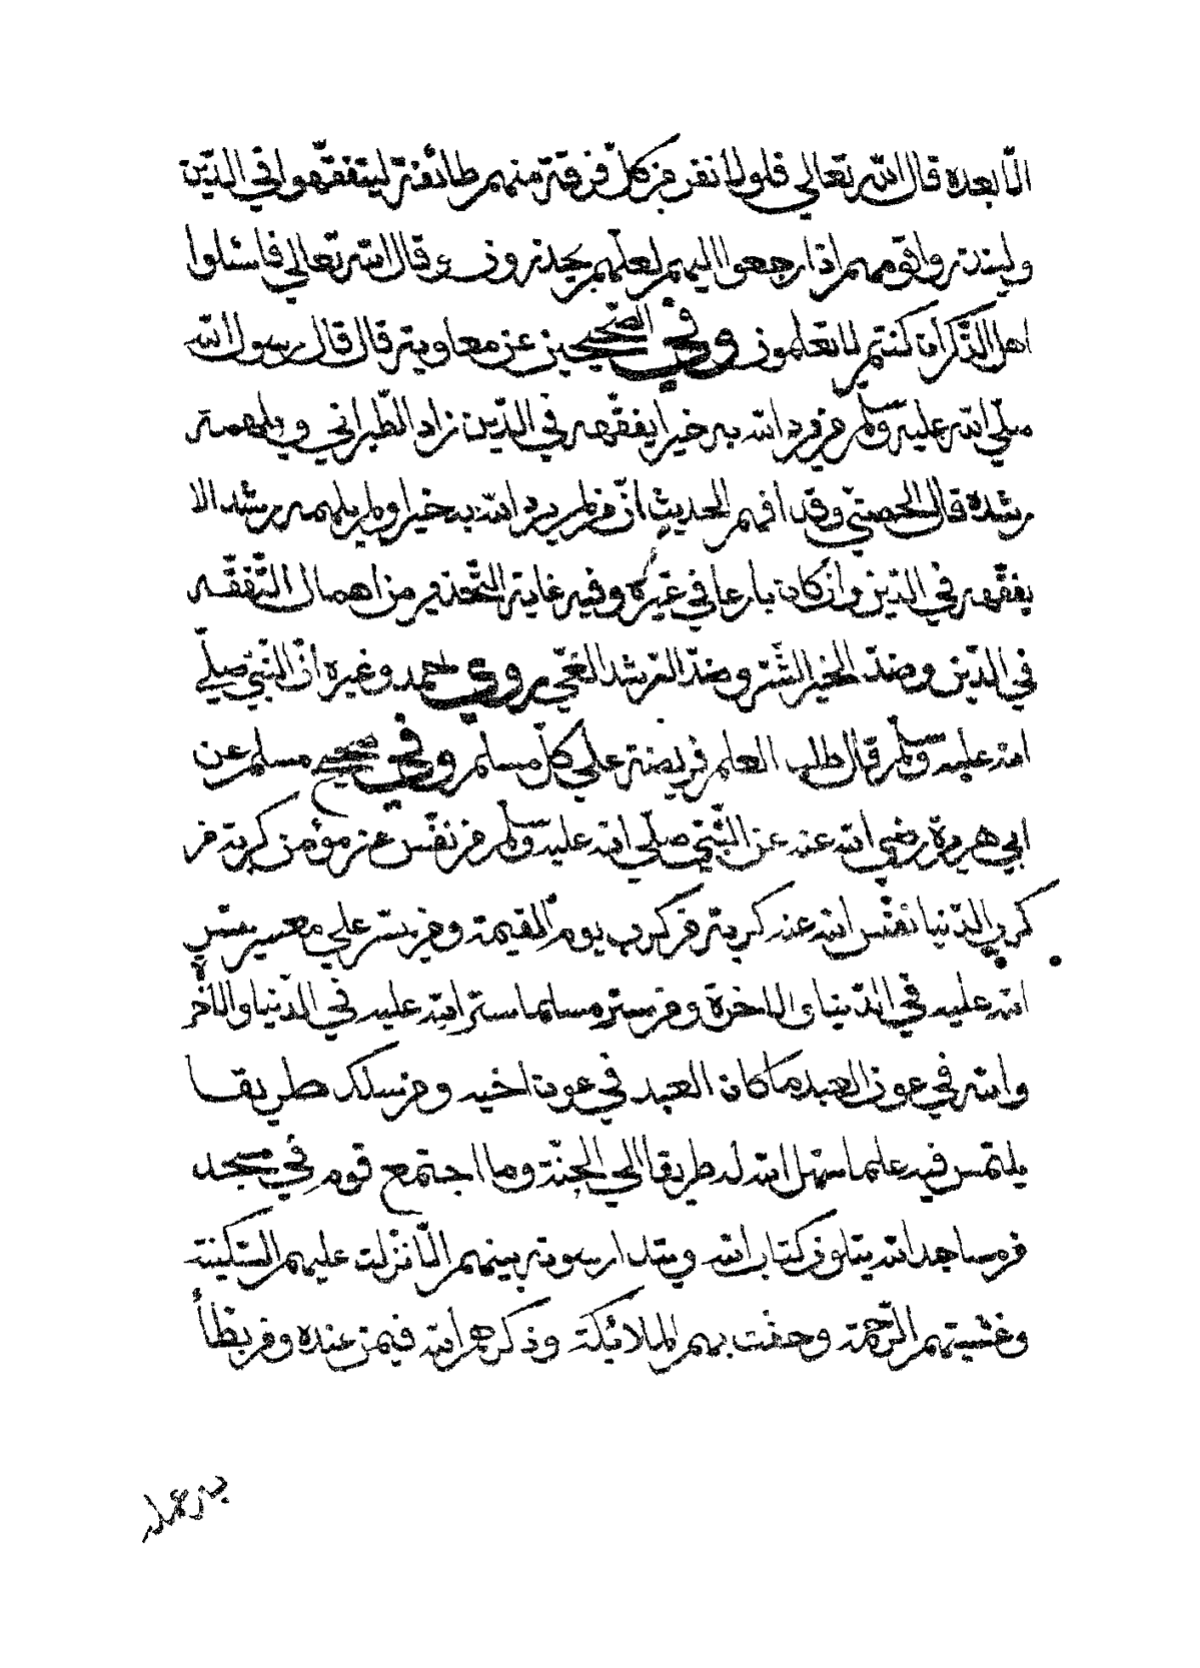 الا بعده قال الله تعالى فلولا نفر من كل فرقة منهم طائفة ليتفقهوا في الدين
ولينذروا قومهم اذا رجعوا اليهم لعلهم يحذرون وقال الله تعالى فاسئلوا
اهل الذكر ان كنتم لا تعلمون وفي الصحيحين عن معاوية قال قال رسول الله
صلي الله عليه وسلم من يرد الله به خيرا يفقهه في الدين زاد الطبراني ويلهمه
رشده قال الحصني وقد افهم الحديث ان من لم يرد الله به خيرا ولم يلهمه رشد الا
يفقهه في الدين وان كان بارعا في غيره وفيه غاية التحذير من اهمال التفقه
في الدين وضد الخير الشر وضد الرشد الغي وروي احمد وغيره ان النبي صلي
الله عليه وسلم قال طلب العلم فريضة علي كل مسلم وفي صحيح مسلم عن
ابي هريرة رضي الله عنه عن النبي صلي الله عليه وسلم من نفس عن مؤمن كربة من
كرب الدنيا نفس الله عنه كربة من كرب يوم القيمة ومن يسر علي معسر يسر
الله عليه في الدنيا والاخرة ومن ستر مسلما ستر الله عليه في الدنيا والاخرة
والله في عون العبد ما كان العبد في عون اخيه ومن سلك طريقا
يلتمس فيه علما سهل الله له طريقا الي الجنة وما اجتمع قوم في مسجد
من مساجد الله يتلون كتاب الله ويتدارسونه بينهم الا نزلت عليهم السكينة
وغشيتهم الرحمة وحفت بهم الملائكة وذكرهم الله فيمن عنده ومن بطأ
به عمله